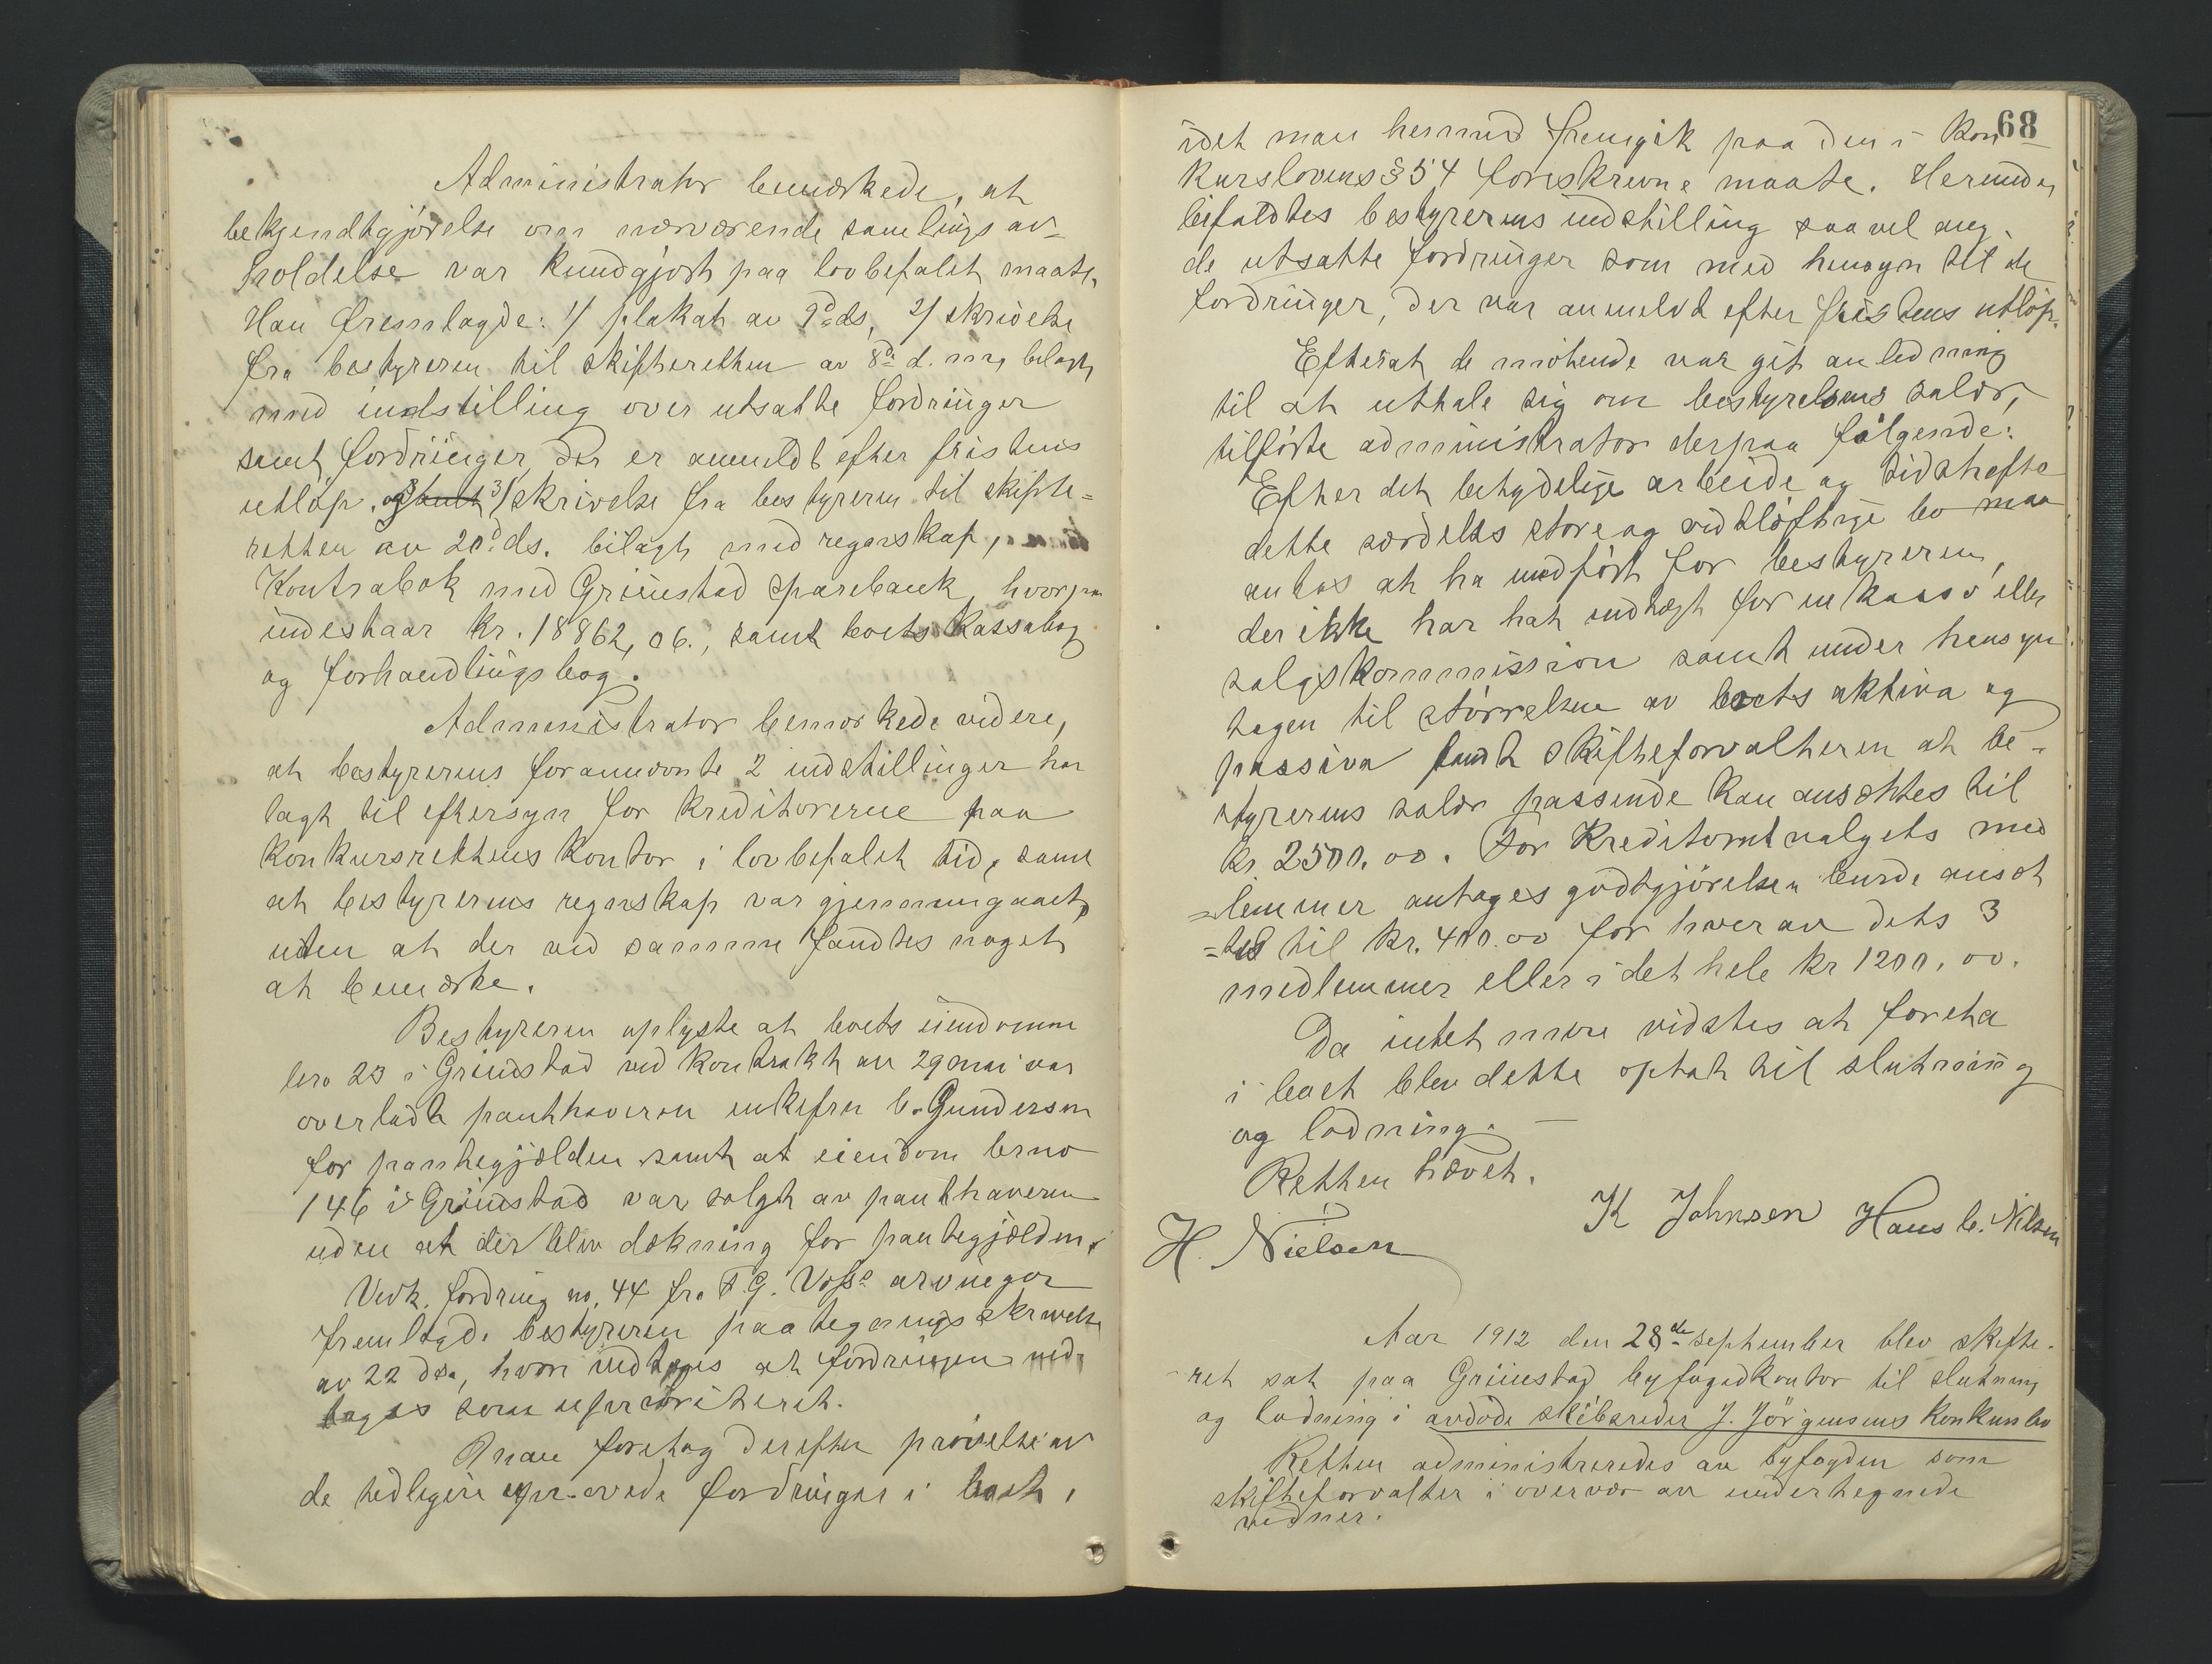 Administrator bemærkede, at
bekjendtgjørelse om nærværende samlings av-
holdelse var kundgjort paa lovbefalet maate.
Han fremlagde: 1/ plakat av 9de ds, 2/ skrivelse
fra bestyreren til skifteretten av 8de d. m., bilagt
med indstilling over utsatte fordringer
samt fordringer, der er anmeldt efter fristens
utløp. 3/ skrivelse fra bestyreren til skifte-
retten av 20de ds. bilagt med regnskap,
Kontrabok med Grimstad Sparebank, hvorpaa
indestaar kr. 18862,06., samt boets Kassabog
og forhandlingsbog.
Administrator bemerkede videre,
at bestyrerens forannævnte 2 indstillinger har
lagt til eftersyn for kreditorerne paa
konkursrettens kontor i lovbefalet tid, samt
at bestyrerens regnskap var gjennemgaaet,
uten at der ved samme fandtes noget
at bemærke.
Bestyreren oplyste at boets eiendomme
bno 23 i Grimstad ved kontrakt av 29 mai var
overladt panthaveren enkefru B. Gundersen
for pantegjælden samt at eiendom brno
146 i Grimstad var solgt av panthaveren
uden at der blev dækning for pantegjælden.
Vedk. fordring no. 44 fra T. G. Voss' arvinger
fremlagde bestyreren paategningsskrivelse
av 22 ds., hvori indtages at fordringen med-
tages som uprioriteret.
Man foretog derefter prøvelse av
de tidligere uprøvede fordringer i boet,
68
idet man hermed fremgik paa den i Kon-
kurslovens § 54 foreskrevne maate. Herunder
bifaldtes bestyrerens indstilling saavel ang.
de utsatte fordringer som med hensyn til de
fordringer, der var anmeldt efter fristens utløp.
Efterat de møtende var git anledning
til at uttale sig om bestyrelsens salær,
tilførte administrator derpaa følgende:
Efter det betydelige arbeide og tidshefte
dette særdeles store og vidtløftige bo maa
antas at ha medført for bestyreren,
der ikke har hat indtægt for inkasso eller
salgskommission samt under hensyn
tagen til størrelsen av boets aktiva og
passiva fandt skifteforvalteren at be-
styrerens salær passende kan ansættes til
kr. 2500.00. For Kreditorutvalgets med
-lemmer antages godtgjørelsen burde ansæt
-tes til kr. 400.00 for hver av dets 3
medlemmer eller i det hele kr 1200.00.
Da intet mere vidstes at foreta
i boet blev dette optat til slutning
og lodning. —
Retten hævet.
K Johnsen Hans C. Nilsen
H. Nielsen
Aar 1912 den 28de september blev skifte-
ret sat paa Grimstad byfogdkontor til slutning
og lodning i avdøde skibsreder J. Jörgensens Konkursbo
Retten administreredes av byfogden som
skifteforvalter i overvær av undertegnede
vidner.